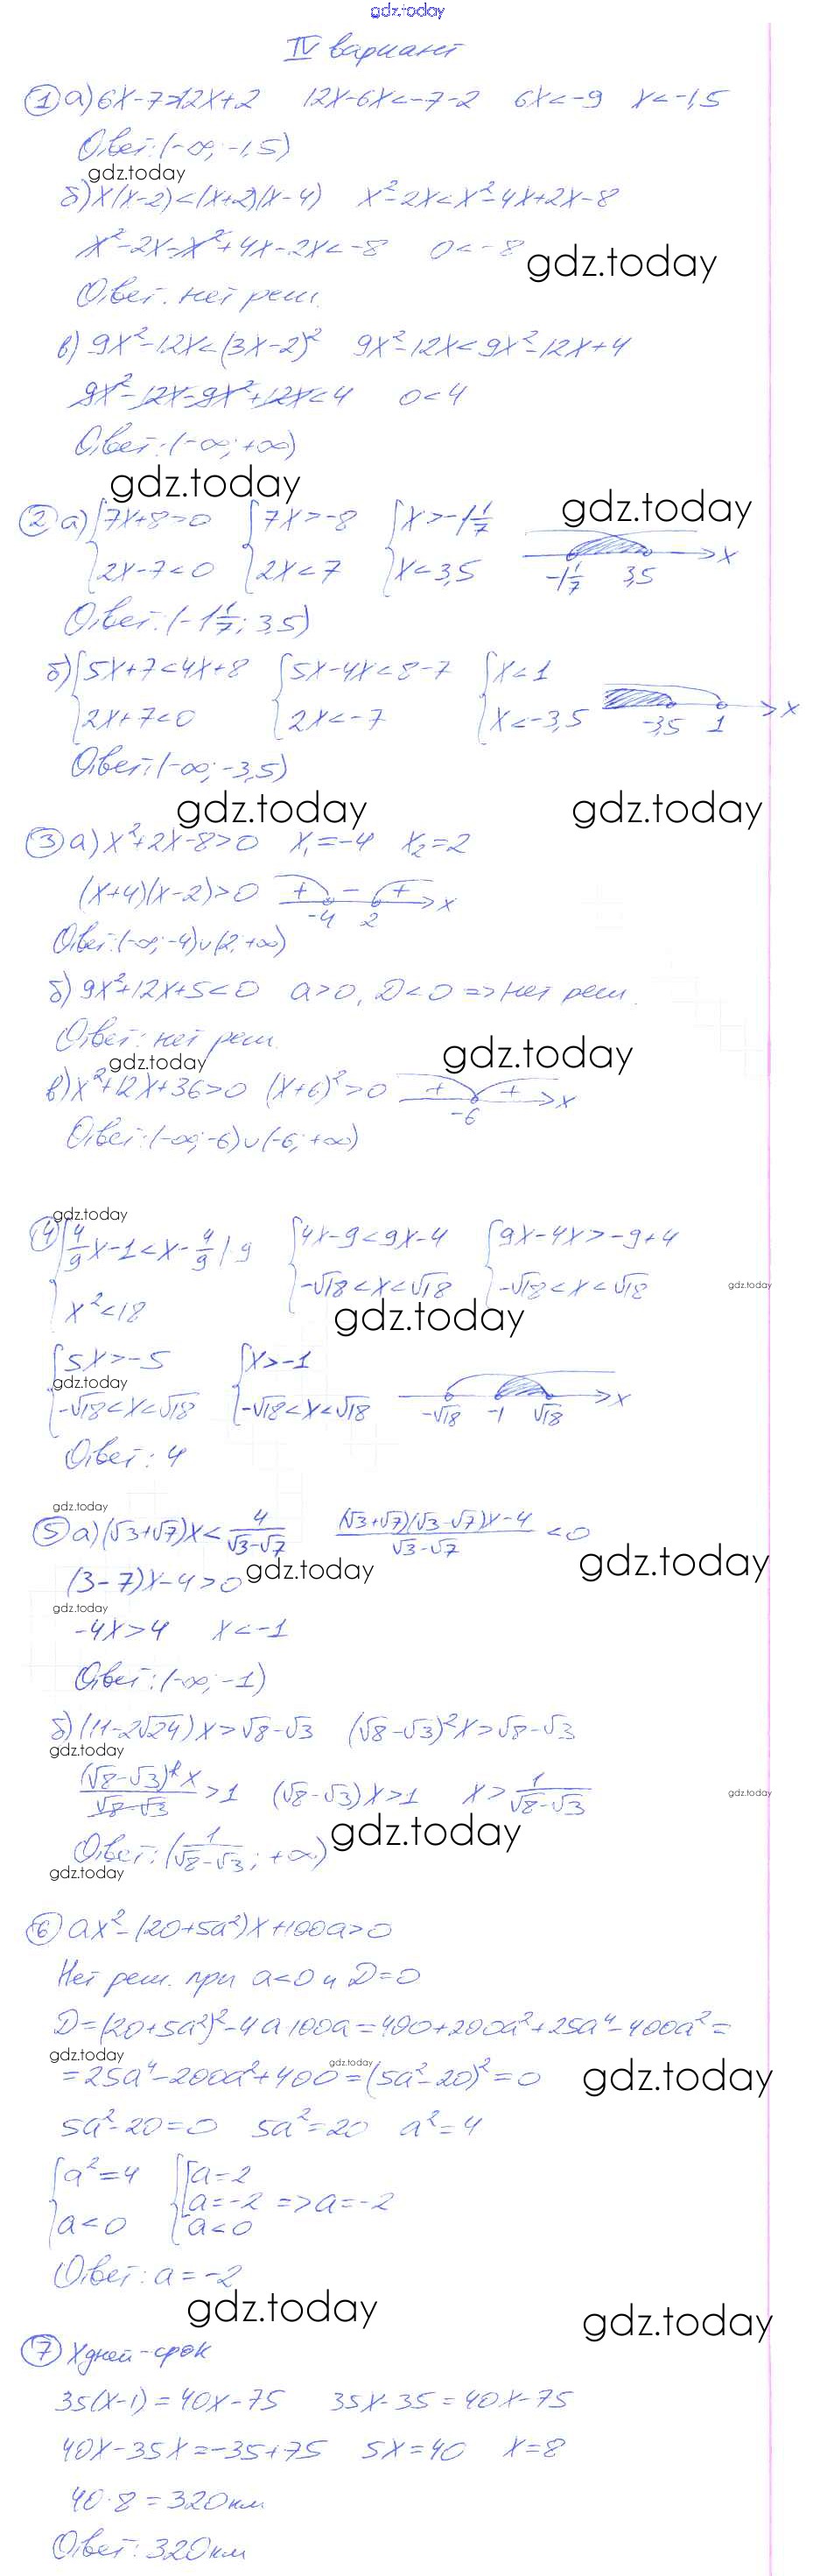 gdz.today
IV вариант
① а) 6x-7>12x+2   12x-6x<-7-2   6x<-9   x<-1,5
Ответ: (-∞; -1,5)
gdz.today
б) x(x-2)<(x+2)(x-4)   x²-2x<x²-4x+2x-8
x²-2x-x²+4x-2x<-8   0<-8
gdz.today
Ответ: нет реш.
в) 9x²-12x<(3x-2)²   9x²-12x<9x²-12x+4
9x²-12x-9x²+12x<4   0<4
Ответ: (-∞; +∞)
gdz.today
gdz.today
② а) {7x+8>0   {7x>-8   {x>-1 1/7
{2x-7<0   {2x<7   {x<3,5   -1 1/7   3,5   x
Ответ: (-1 1/7; 3,5)
б) {5x+7<4x+8   {5x-4x<8-7   {x<1
{2x+7<0   {2x<-7   {x<-3,5   -3,5   1   x
Ответ: (-∞; -3,5)
gdz.today gdz.today
③ а) x²+2x-8>0   x₁=-4   x₂=2
(x+4)(x-2)>0   + - +   -4   2   x
Ответ: (-∞; -4)∪(2; +∞)
б) 9x²+12x+5<0   a>0, D<0 => нет реш.
Ответ: нет реш.
gdz.today gdz.today
в) x²+12x+36>0   (x+6)²>0   + +   -6   x
Ответ: (-∞; -6)∪(-6; +∞)
gdz.today
④ {4/9 x-1<x-4/9 | 9   {4x-9<9x-4   {9x-4x>-9+4
{x²<18   {-√18<x<√18   {-√18<x<√18
gdz.today
gdz.today
{5x>-5   {x>-1
gdz.today
{-√18<x<√18   {-√18<x<√18   -√18   -1   √18   x
Ответ: 4
gdz.today
⑤ а) (√3+√7)x < 4/(√3-√7)   ((√3+√7)(√3-√7)x-4)/(√3-√7) <0
gdz.today gdz.today
(3-7)x-4>0
gdz.today
-4x>4   x<-1
Ответ: (-∞; -1)
б) (11-2√24)x>√8-√3   (√8-√3)²x>√8-√3
gdz.today
(√8-√3)²x/(√8-√3) >1   (√8-√3)x>1   x>1/(√8-√3)
gdz.today
Ответ: (1/(√8-√3); +∞)
gdz.today
gdz.today
⑥ ax²-(20+5a²)x+100a>0
Нет реш. при a<0 и D=0
D=(20+5a²)²-4a·100a=400+200a²+25a⁴-400a²=
gdz.today gdz.today gdz.today
=25a⁴-200a²+400=(5a²-20)²=0
5a²-20=0   5a²=20   a²=4
{a²=4   {[a=2
[a=-2 => a=-2
{a<0   {a<0
Ответ: a=-2
gdz.today gdz.today
⑦ x дней - срок
35(x-1)=40x-75   35x-35=40x-75
40x-35x=-35+75   5x=40   x=8
40·8=320км
Ответ: 320км